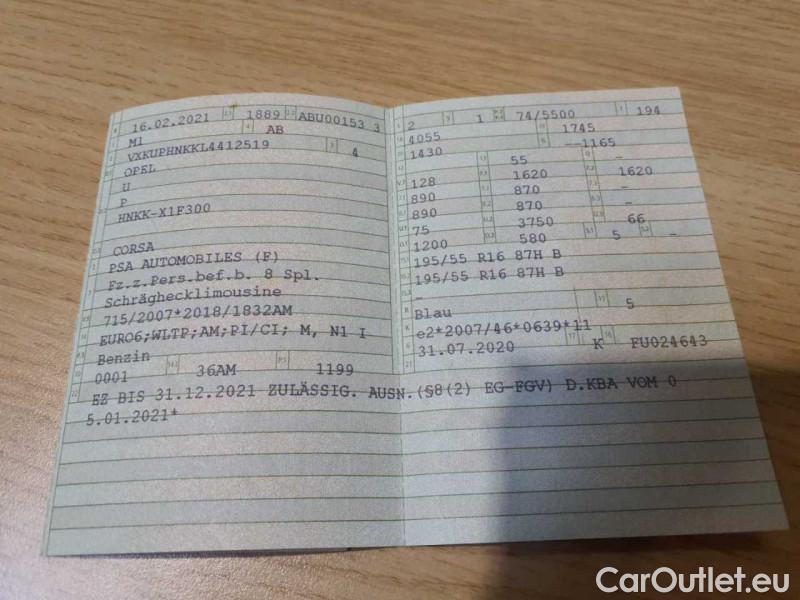 16.02.2021 1889 ABU00153 3
M1 AB
VXKUPHNKKL4412519 4
OPEL
U
P
HNKK-X1F300
CORSA
PSA AUTOMOBILES (F)
Fz.z.Pers.bef.b. 8 Spl.
Schräghecklimousine
715/2007*2018/1832AM
EURO6;WLTP;AM;PI/CI; M, N1 I
Benzin
0001 36AM 1199
2 1 74/5500 194
4055 1745
1430 --1165
55 -
128 1620 1620
890 870 -
890 870 -
75 3750 66
1200 580 5 -
195/55 R16 87H B
195/55 R16 87H B
-
Blau 5
e2*2007/46*0639*11
31.07.2020 K FU024643
EZ BIS 31.12.2021 ZULÄSSIG. AUSN.(§8(2) EG-FGV) D.KBA VOM 0
5.01.2021*
CarOutlet.eu